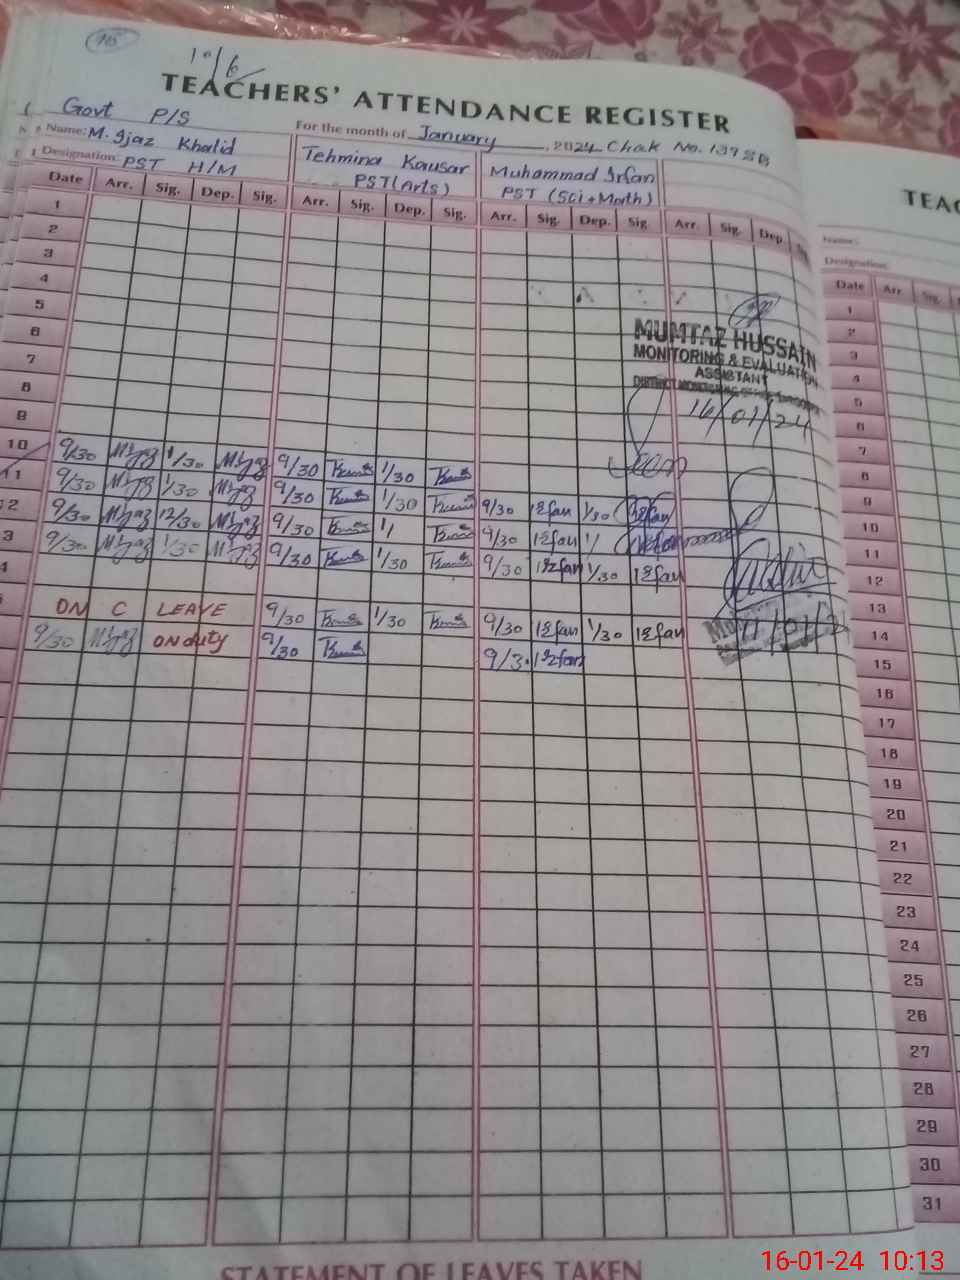 1º/6
TEACHERS' ATTENDANCE REGISTER
Govt P/S For the month of January, 2024 Chak No. 139 SB
Name: M. Ijaz Khalid Tehmina Kausar Muhammad Irfan
Designation: PST H/M PST (Arts) PST (Sci + Math)
Date Arr. Sig. Dep. Sig. Arr. Sig. Dep. Sig. Arr. Sig. Dep. Sig. Arr. Sig. Dep.
1
2
3
4
5
6
7
8
9
10 9/30 M Ijaz 1/30 M Ijaz 9/30 1/30
11 9/30 M Ijaz 1/30 M Ijaz 9/30 1/30 9/30 Irfan 1/30 Irfan
2 9/30 M Ijaz 12/30 M Ijaz 9/30 1/ 9/30 Irfan 1/ Irfan
3 9/30 M Ijaz 1/30 M Ijaz 9/30 1/30 9/30 Irfan 1/30 Irfan
4
ON C LEAVE 9/30 1/30 9/30 Irfan 1/30 Irfan
9/30 M Ijaz ON duty 9/30 9/3. Irfan
MUMTAZ HUSSAIN
MONITORING & EVALUATION
ASSISTANT
16/01/24
Seen
11/01/2
STATEMENT OF LEAVES TAKEN
TEAC
Name:
Designation:
Date Arr. Sig.
1
2
3
4
5
6
7
8
9
10
11
12
13
14
15
16
17
18
19
20
21
22
23
24
25
26
27
28
29
30
31
16-01-24 10:13